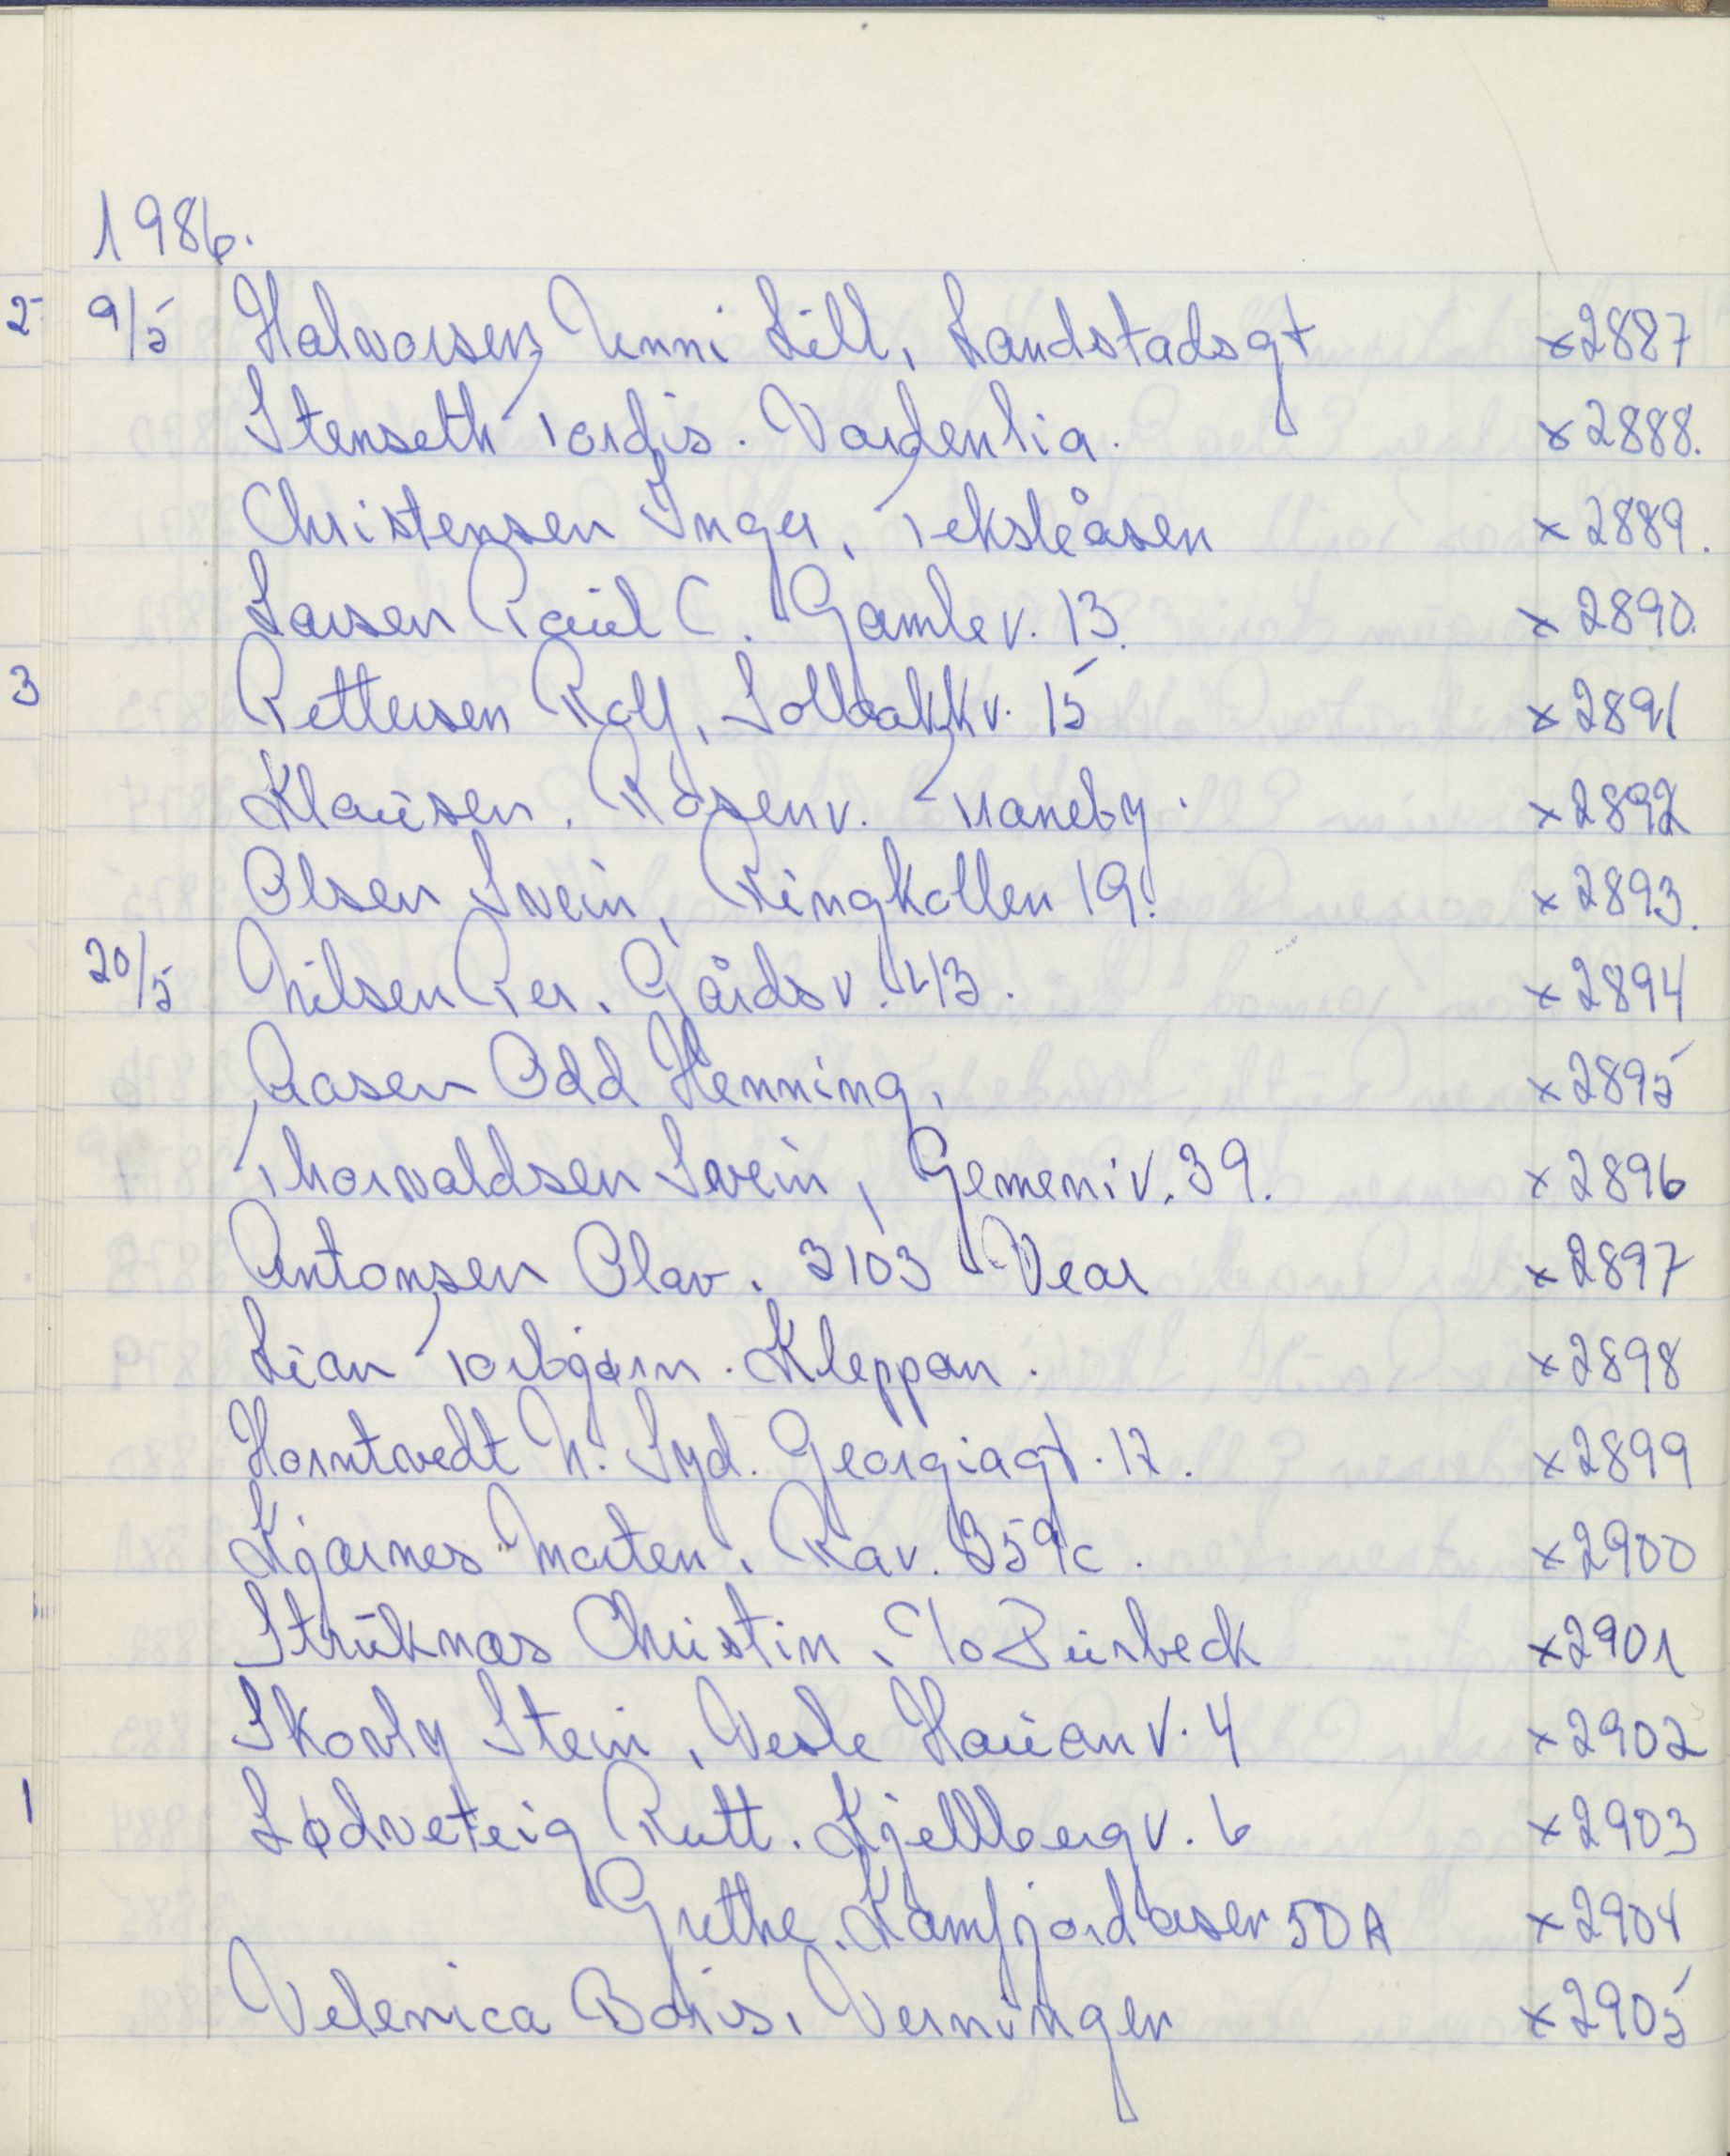 1986.
2 9/5 Halvorsen, Unni Lill, Landstadsgt x2887
Stenseth Tordis. Vardenlia. x2888.
Christensen Inger, Teksleåsen x2889.
Larsen Paul C. Gamlev. 13. x2890.
3 Pettersen Rolf, Solbakkv. 15 x2891
Klausen. Rosenv. Traneby. x2892
Olsen Svein, Ringkollen 19. x2893.
20/5 Nilsen Per. Gårdsv. 43. x2894
Aasen Odd Henning, x2895
Thorvaldsen Svein, Gemeniv. 39. x2896
Antonsen Olav. 3103 Vear x2897
Lian Torbjørn. Kleppan. x2898
Horntvedt N. Syd. Georgiagt. 12. x2899
Kjærnes Morten. Rav. 359c. x2900
Struknæs Christin, c/o x2901
Skovly Stein, Vesle Hauanv. 4 x2902
1 Lødveteig Rutt. Kjellbergv. 6 x2903
Grethe, Kamfjordåsen 50 A x2904
Velenica Boris, Verningen x2905